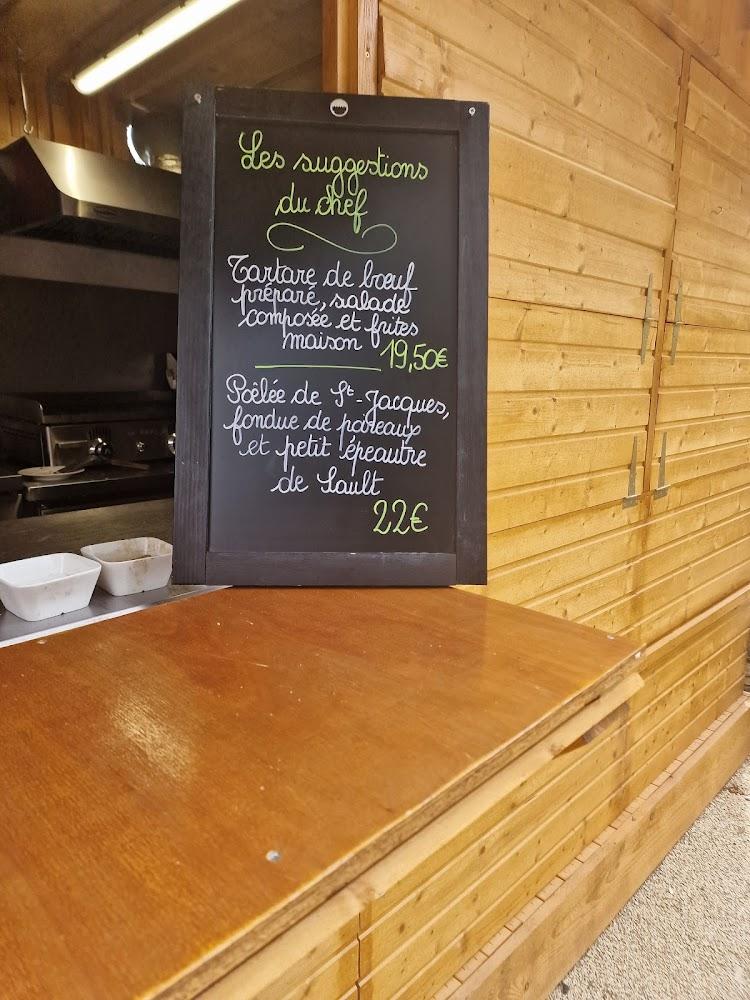 Les suggestions
du chef
Tartare de bœuf
préparé, salade
composée et frites
maison 19,50€
Poêlée de St-Jacques,
fondue de poireaux
et petit épeautre
de Sault
22€